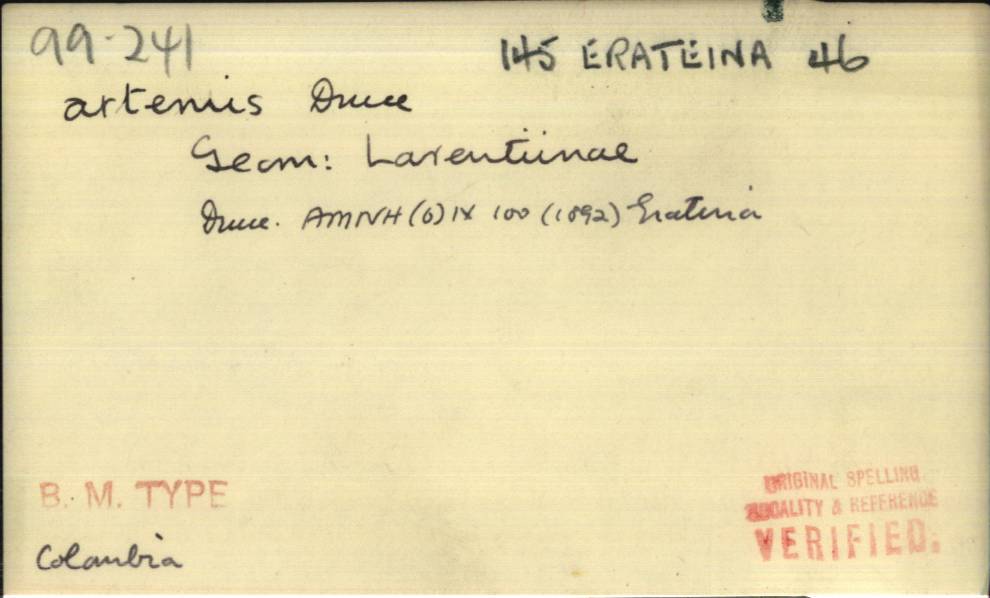 99-241
145 ERATEINA 46
artemis Druce
Geom: Larentiinae
Druce. AMNH (6) IX 100 (1892) Erateina
B. M. TYPE
Colombia
ORIGINAL SPELLING
LOCALITY & REFERENCE
VERIFIED.